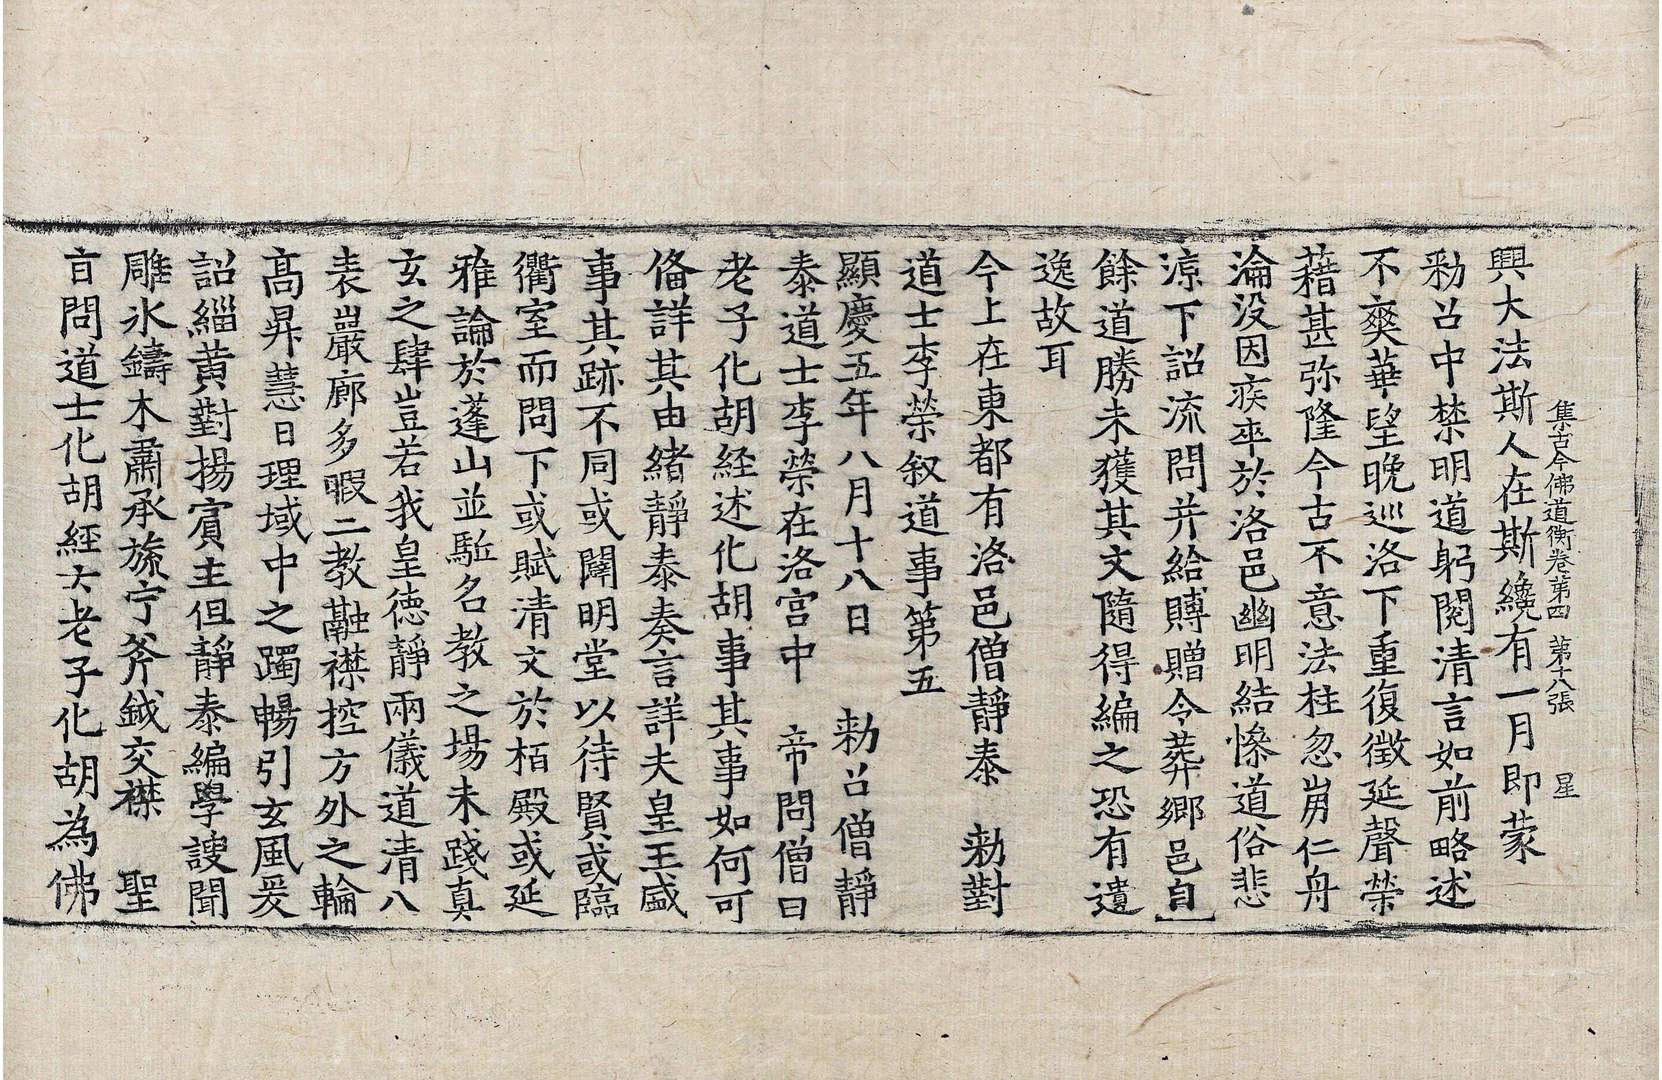 集古今佛道衡卷苐四 苐十八張 星
興大法斯人在斯纔有一月即蒙
勑召中禁明道躬閱清言如前略述
不爽華望晚巡洛下重復徵延聲榮
藉甚弥隆今古不意法柱忽崩仁舟
淪没因疾卒於洛邑幽明結慘道俗悲
涼下詔流問并給賻贈令葬鄉邑自
餘道勝未獲其文隨得編之恐有遺
逸故耳
今上在東都有洛邑僧靜泰 勑對
道士李榮叙道事第五
顯慶五年八月十八日 勑召僧靜
泰道士李榮在洛宫中 帝問僧曰
老子化胡経述化胡事其事如何可
俻詳其由緒靜泰奏言詳夫皇王盛
事其跡不同或闡明堂以待賢或臨
衢室而問下或賦清文於栢殿或延
雅論於蓬山並駈名教之場未踐真
玄之肆豈若我皇德靜兩儀道清八
表巖廊多暇二教融襟控方外之輪
髙昇慧日理域中之躅暢引玄風爰
詔緇黄對揚賓主但靜泰編學謏聞
雕氷鑄木肅承旒扆斧鉞交襟 聖
旨問道士化胡経云老子化胡為佛